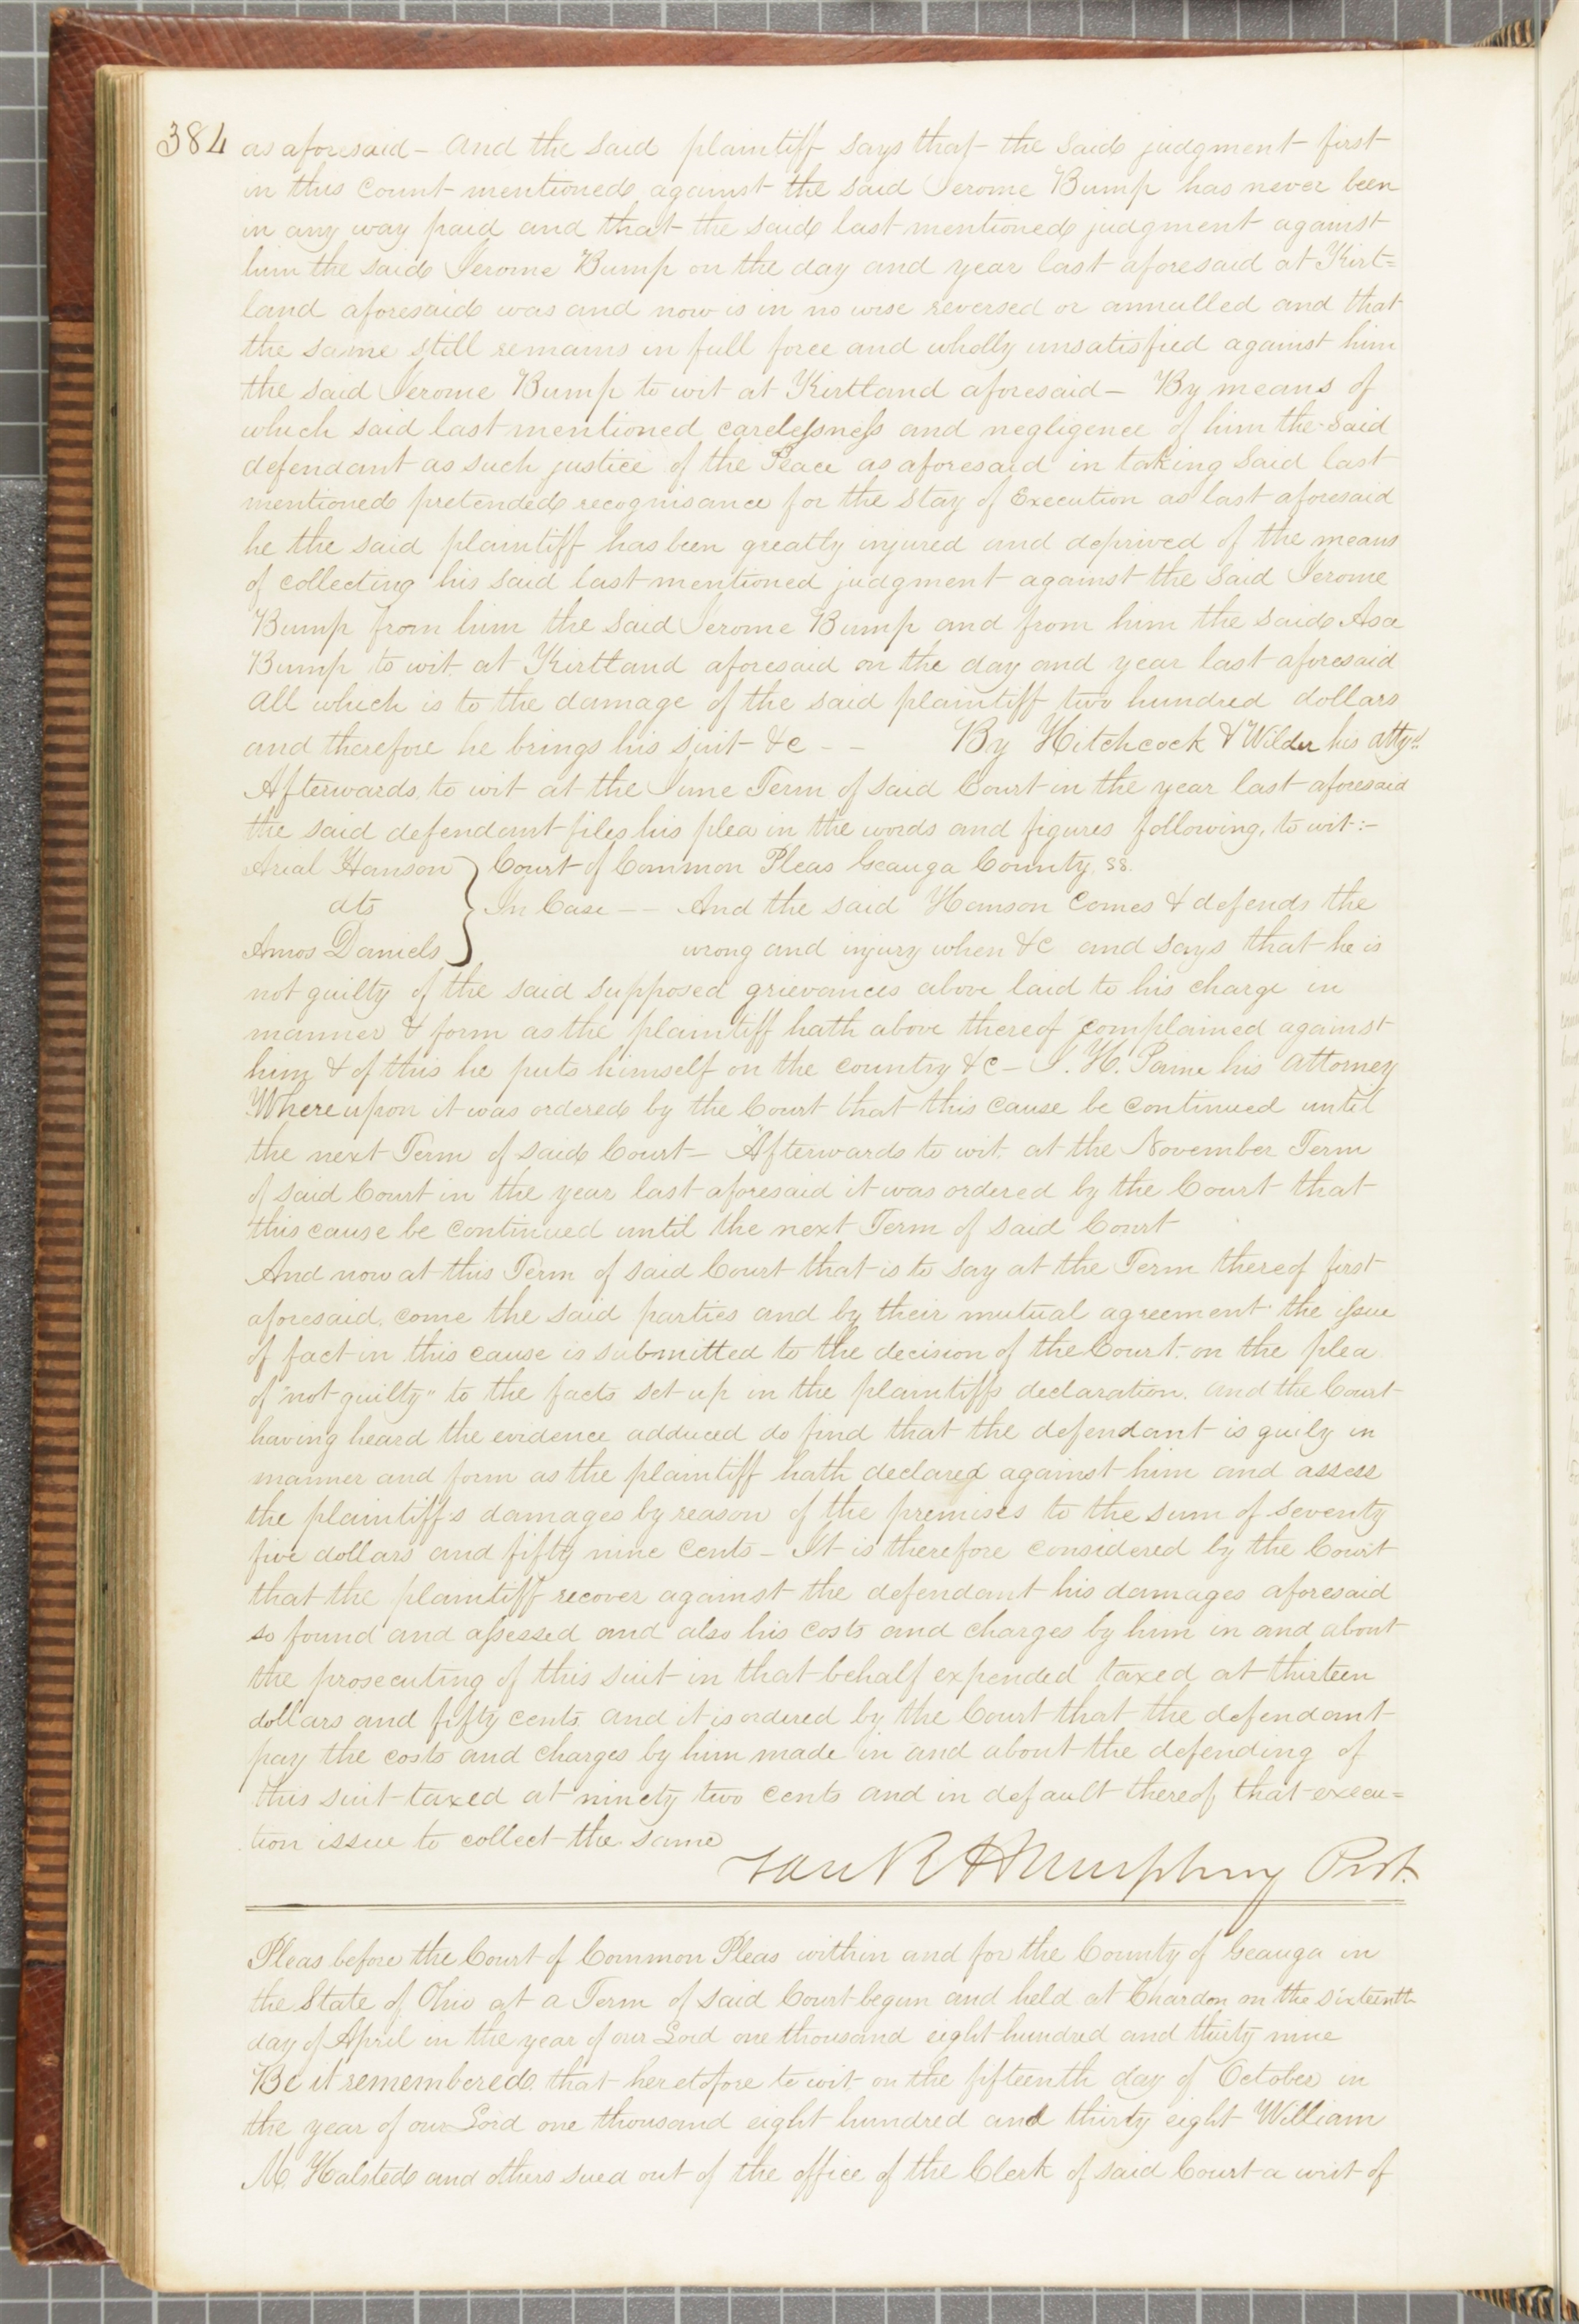 384 as aforesaid - And the said plaintiff says that the said judgment first
in this Count mentioned against the said Jerome Bump has never been
in any way paid and that the said last mentioned judgment against
him the said Jerome Bump on the day and year last aforesaid at Kirt=
land aforesaid was and now is in no wise reversed or annulled and that
the same still remains in full force and wholly unsatisfied against him
the said Jerome Bump to wit at Kirtland aforesaid - By means of
which said last mentioned carelessness and negligence of him the said
defendant as such justice of the Peace as aforesaid in taking said last
mentioned pretended recognisance for the stay of Execution as last aforesaid
he the said plaintiff has been greatly injured and deprived of the means
of collecting his said last mentioned judgment against the said Jerome
Bump from him the said Jerome Bump and from him the said Asa
Bump to wit at Kirtland aforesaid on the day and year last aforesaid
All which is to the damage of the said plaintiff two hundred dollars
and therefore he brings his suit &c - - By Hitchcock & Wilder his attys
Afterwards to wit at the June Term of said Court in the year last aforesaid
the said defendant files his plea in the words and figures following, to wit:-
Arial Hanson } Court of Common Pleas Geauga County, ss.
ats } In Case -- And the said Hanson Comes & defends the
Amos Daniels } wrong and injury when &c and says that he is
not guilty of the said supposed grievances above laid to his charge in
manner & form as the plaintiff hath above thereof complained against
him & of this he puts himself on the country &c - J. H. Paine his Attorney
Whereupon it was ordered by the Court that this cause be continued until
the next Term of said Court - Afterwards to wit at the November Term
of said Court in the year last aforesaid it was ordered by the Court that
this cause be continued until the next Term of said Court
And now at this Term of said Court that is to say at the Term thereof first
aforesaid, come the said parties and by their mutual agreement the issue
of fact in this cause is submitted to the decision of the Court on the plea
of "not guilty" to the facts set up in the plaintiffs declaration, and the Court
having heard the evidence adduced do find that the defendant is guily in
manner and form as the plaintiff hath declared against him and assess
the plaintiff's damages by reason of the premises to the sum of seventy
five dollars and fifty nine Cents - It is therefore considered by the Court
that the plaintiff recover against the defendant his damages aforesaid
so found and assessed and also his Costs and charges by him in and about
the prosecuting of this suit in that behalf expended taxed at thirteen
dollars and fifty cents. and it is ordered by the Court that the defendant
pay the costs and charges by him made in and about the defending of
this suit taxed at ninety two cents and in default thereof that execu=
tion issue to collect the same
Van R Humphrey Prst.
Pleas before the Court of Common Pleas within and for the County of Geauga in
the State of Ohio at a Term of said Court begun and held at Chardon on the sixteenth
day of April in the year of our Lord one thousand eight hundred and thirty nine
Be it remembered, that heretofore to wit on the fifteenth day of October in
the year of our Lord one thousand eight hundred and thirty eight William
M. Halsted and others sued out of the office of the Clerk of said Court a writ of